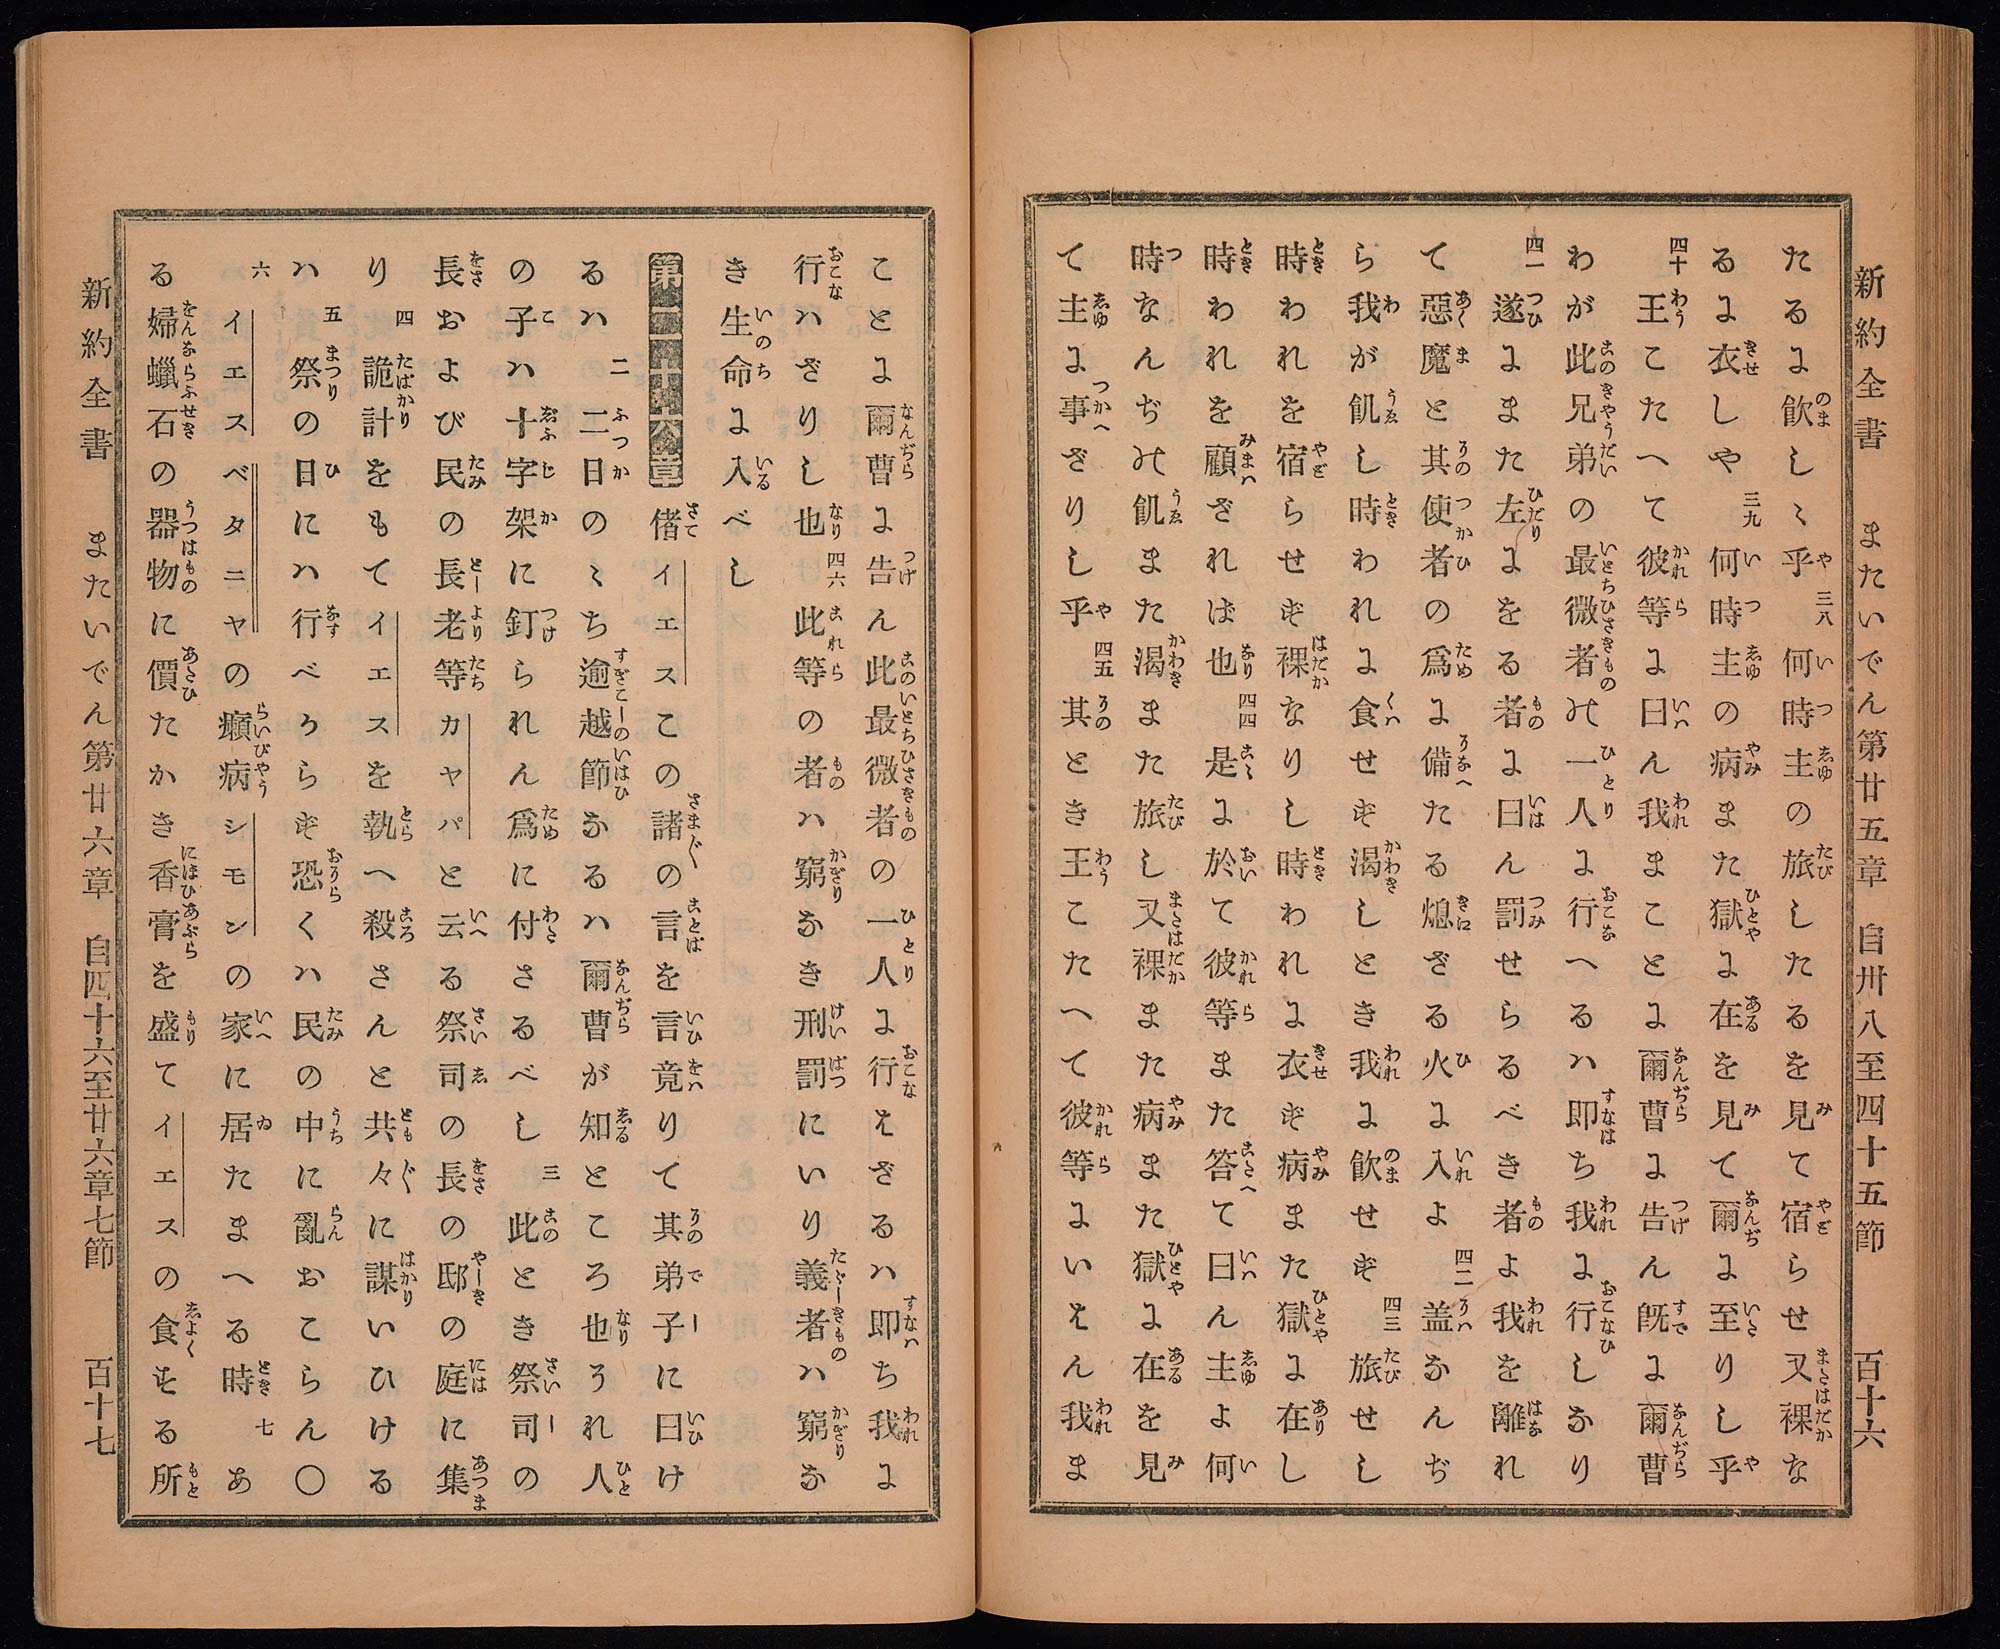 新約全書　またいでん第廿五章　自卅八至四十五節　百十六
たるに飮しゝ乎 三八 何時主の旅したるを見て宿らせ又裸な
るに衣せしや 三九 何時主の病また獄に在を見て爾に至りし乎
四十 王こたへて彼等に曰ん我まことに爾曹に告ん既に爾曹
わが此兄弟の最微者の一人に行へるハ即ち我に行しなり
四一 遂にまた左にをる者に曰ん罰せらるべき者よ我を離れ
て惡魔と其使者の爲に備たる熄ざる火に入よ 四二 盖なんぢ
ら我が飢し時われに食せず渴しとき我に飮せず 四三 旅せし
時われを宿らせず裸なりし時われに衣ず病また獄に在し
時われを顧ざれば也 四四 是に於て彼等また答て曰ん主よ何
時なんぢの飢また渴また旅し又裸また病また獄に在を見
て主に事ざりし乎 四五 其とき王こたへて彼等にいはん我ま
ことに爾曹に告ん此最微者の一人に行はざるハ即ち我に
行ハざりし也 四六 此等の者ハ窮なき刑罰にいり義者ハ窮な
き生命に入べし
第二十六章 偖イエスこの諸の言を言竟りて其弟子に曰け
るハ 二 二日のゝち逾越節なるハ爾曹が知ところ也それ人
の子ハ十字架に釘られん爲に付さるべし 三 此とき祭司の
長および民の長老等カヤパと云る祭司の長の邸の庭に集
り 四 詭計をもてイエスを執へ殺さんと共々に謀いひける
ハ 五 祭の日にハ行べからず恐くハ民の中に亂おこらん〇
六 イエスベタニヤの癩病シモンの家に居たまへる時 七 あ
る婦蠟石の器物に價たかき香膏を盛てイエスの食する所
新約全書　またいでん第廿六章　自四十六至廿六章七節　百十七